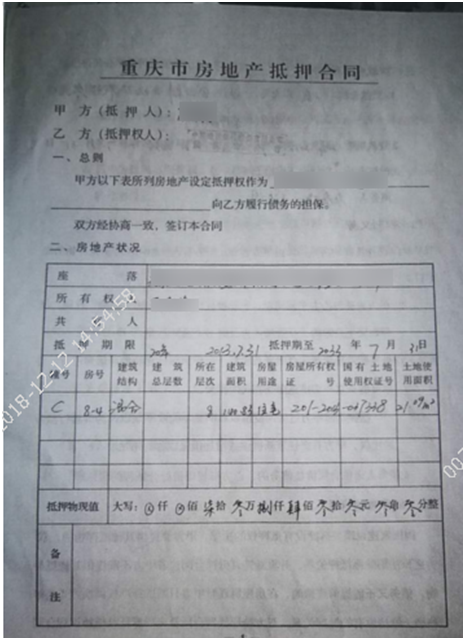 重庆市房地产抵押合同
甲 方(抵 押 人):
乙 方(抵押权人):
一、总则
甲方以下表所列房地产设定抵押权作为
向乙方履行债务的担保。
双方经协商一致,签订本合同
二、房地产状况
座 落
所 有 权 人
共 有 人
抵 押 期 限 20年 2013.7.31 抵押期至 2033 年 7 月 31日
幢号 房号 建筑结构 建筑总层数 所在层次 建筑面积 房屋用途 房屋所有权证号 国有土地使用权证号 土地使用面积
C 8-4 混合 8 住宅
抵押物现值 大写: 仟 佰 柒拾 万 捌仟 肆佰 拾 元 角 分整
备
注
2018-12-12 14:54:58